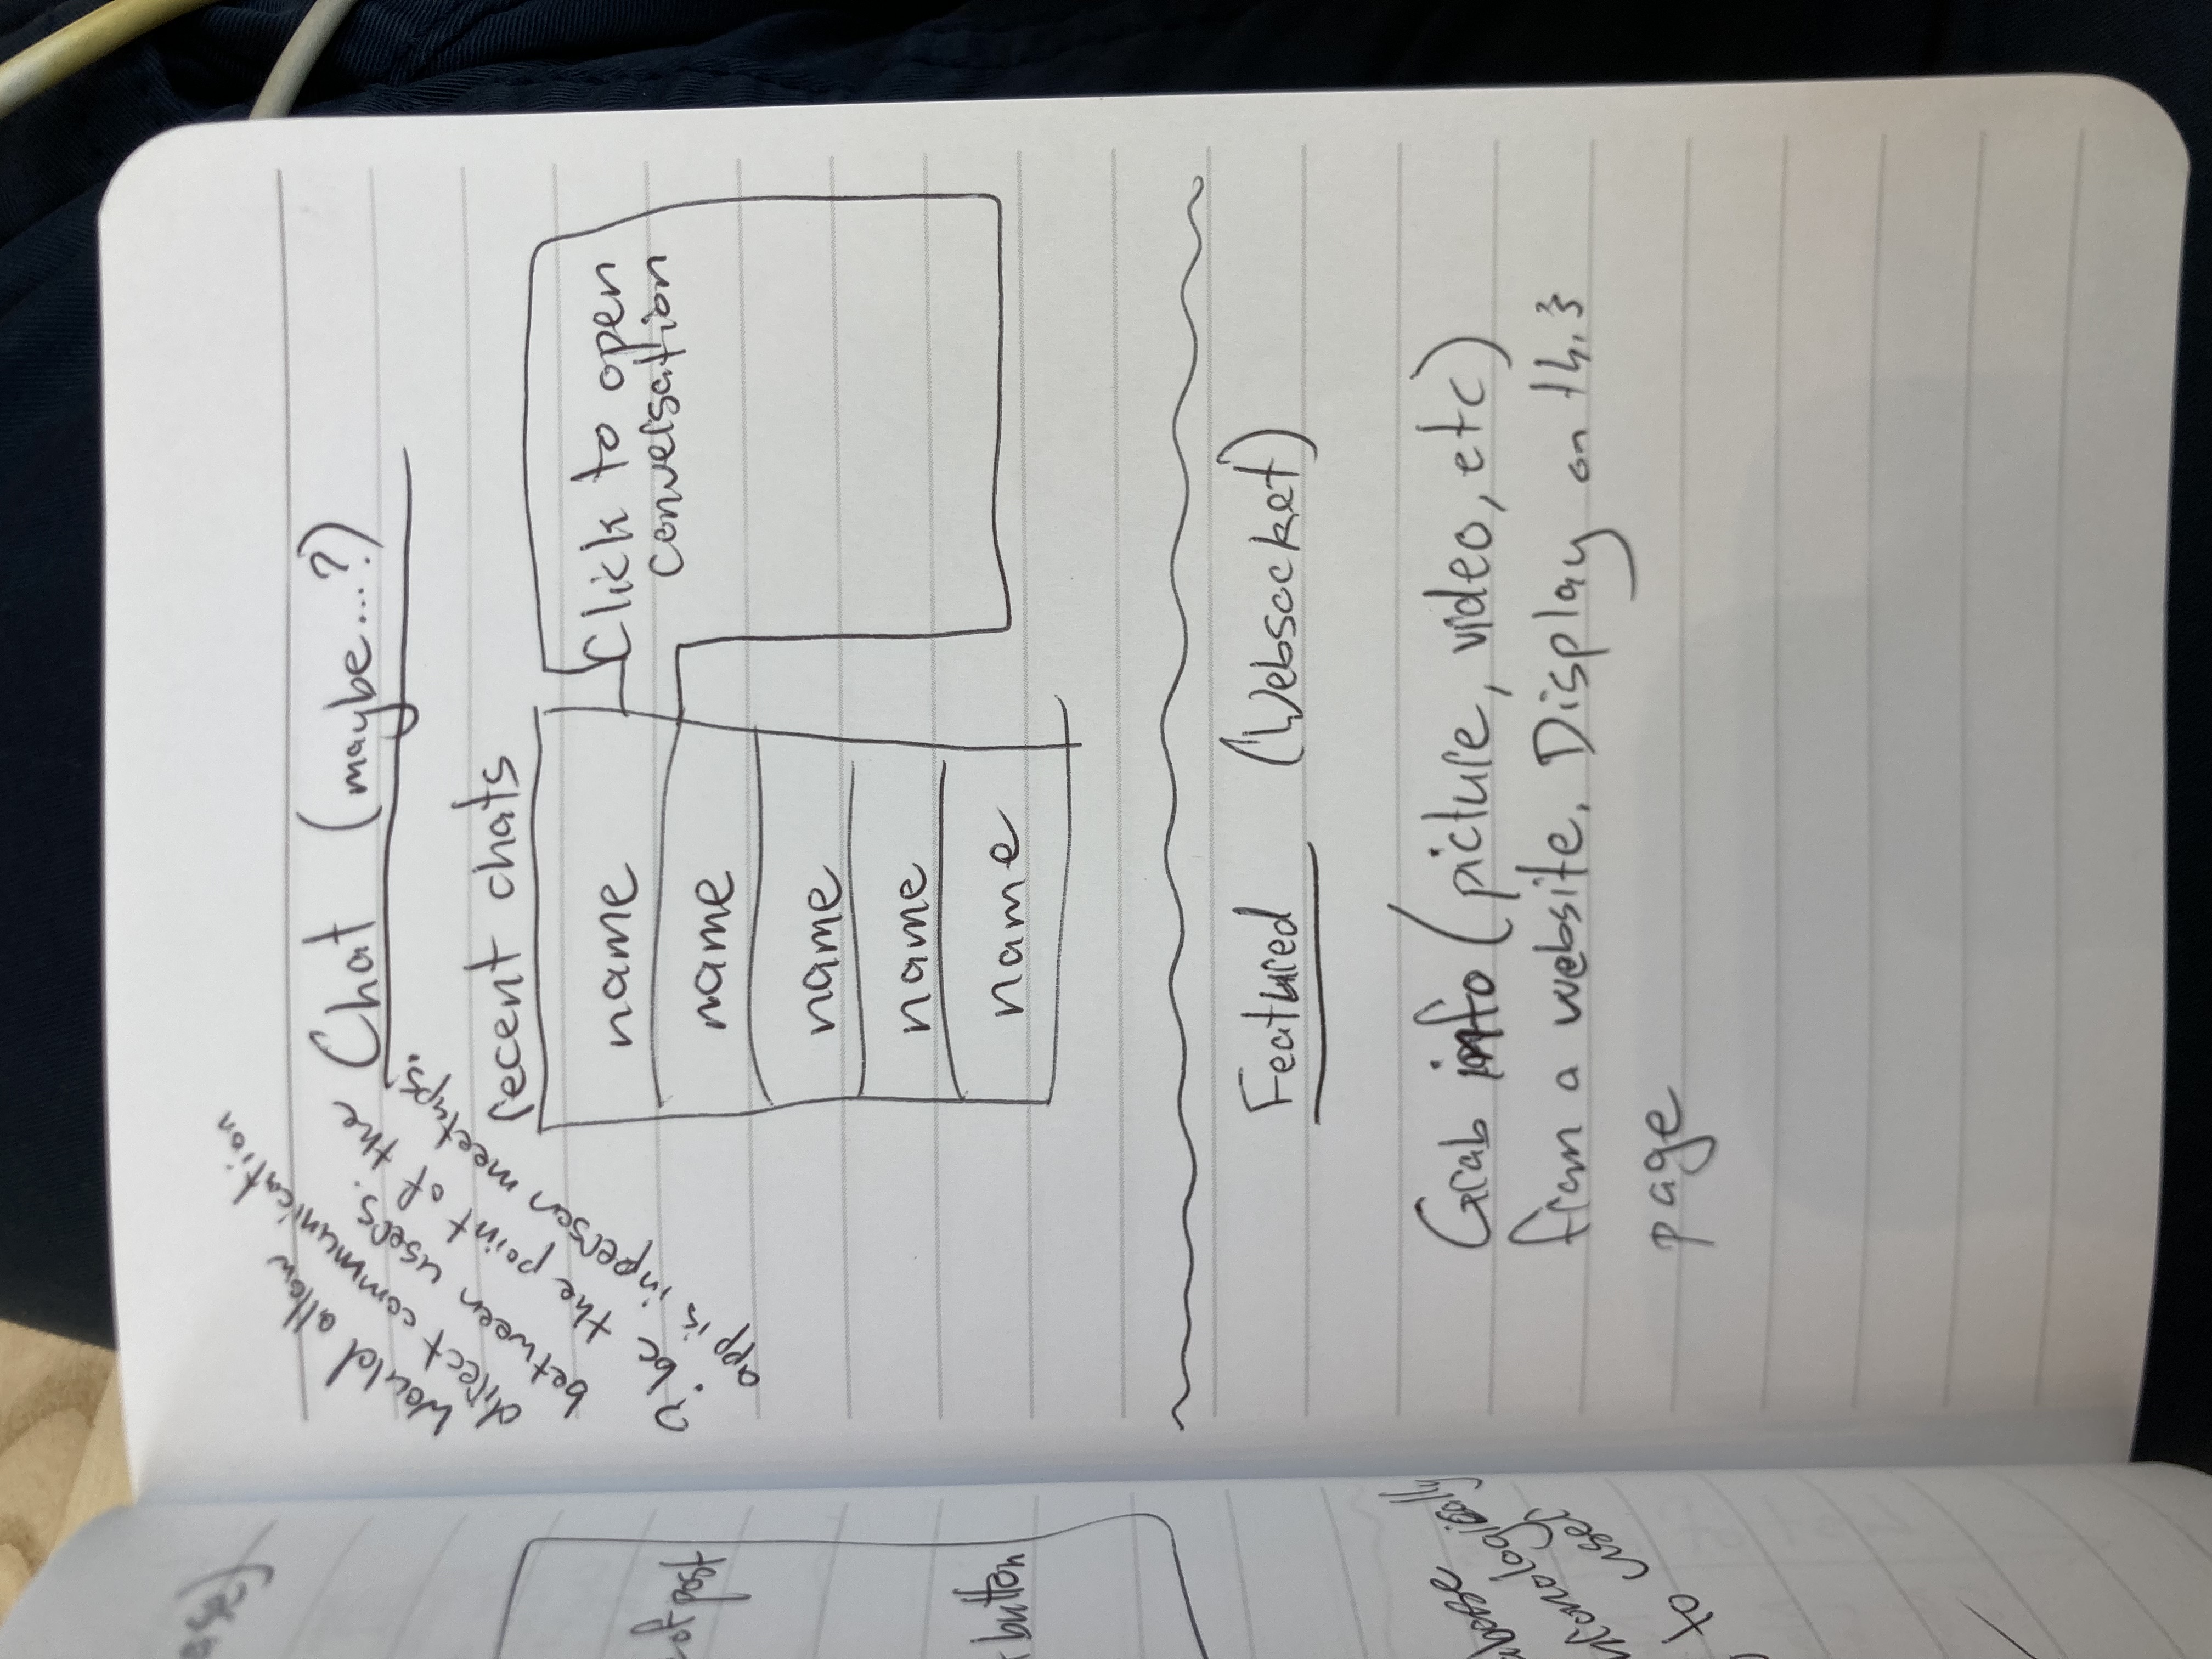 ase)
of post
button
abase
onologically
to user
would allow
direct communication
between users.
? bc the point of the
app is inperson meetups.
Chat (maybe...?)
recent chats
name
name
name
name
name
Click to open
conversation
Featured (Websocket)
Grab info (picture, video, etc)
from a website. Display on this
page